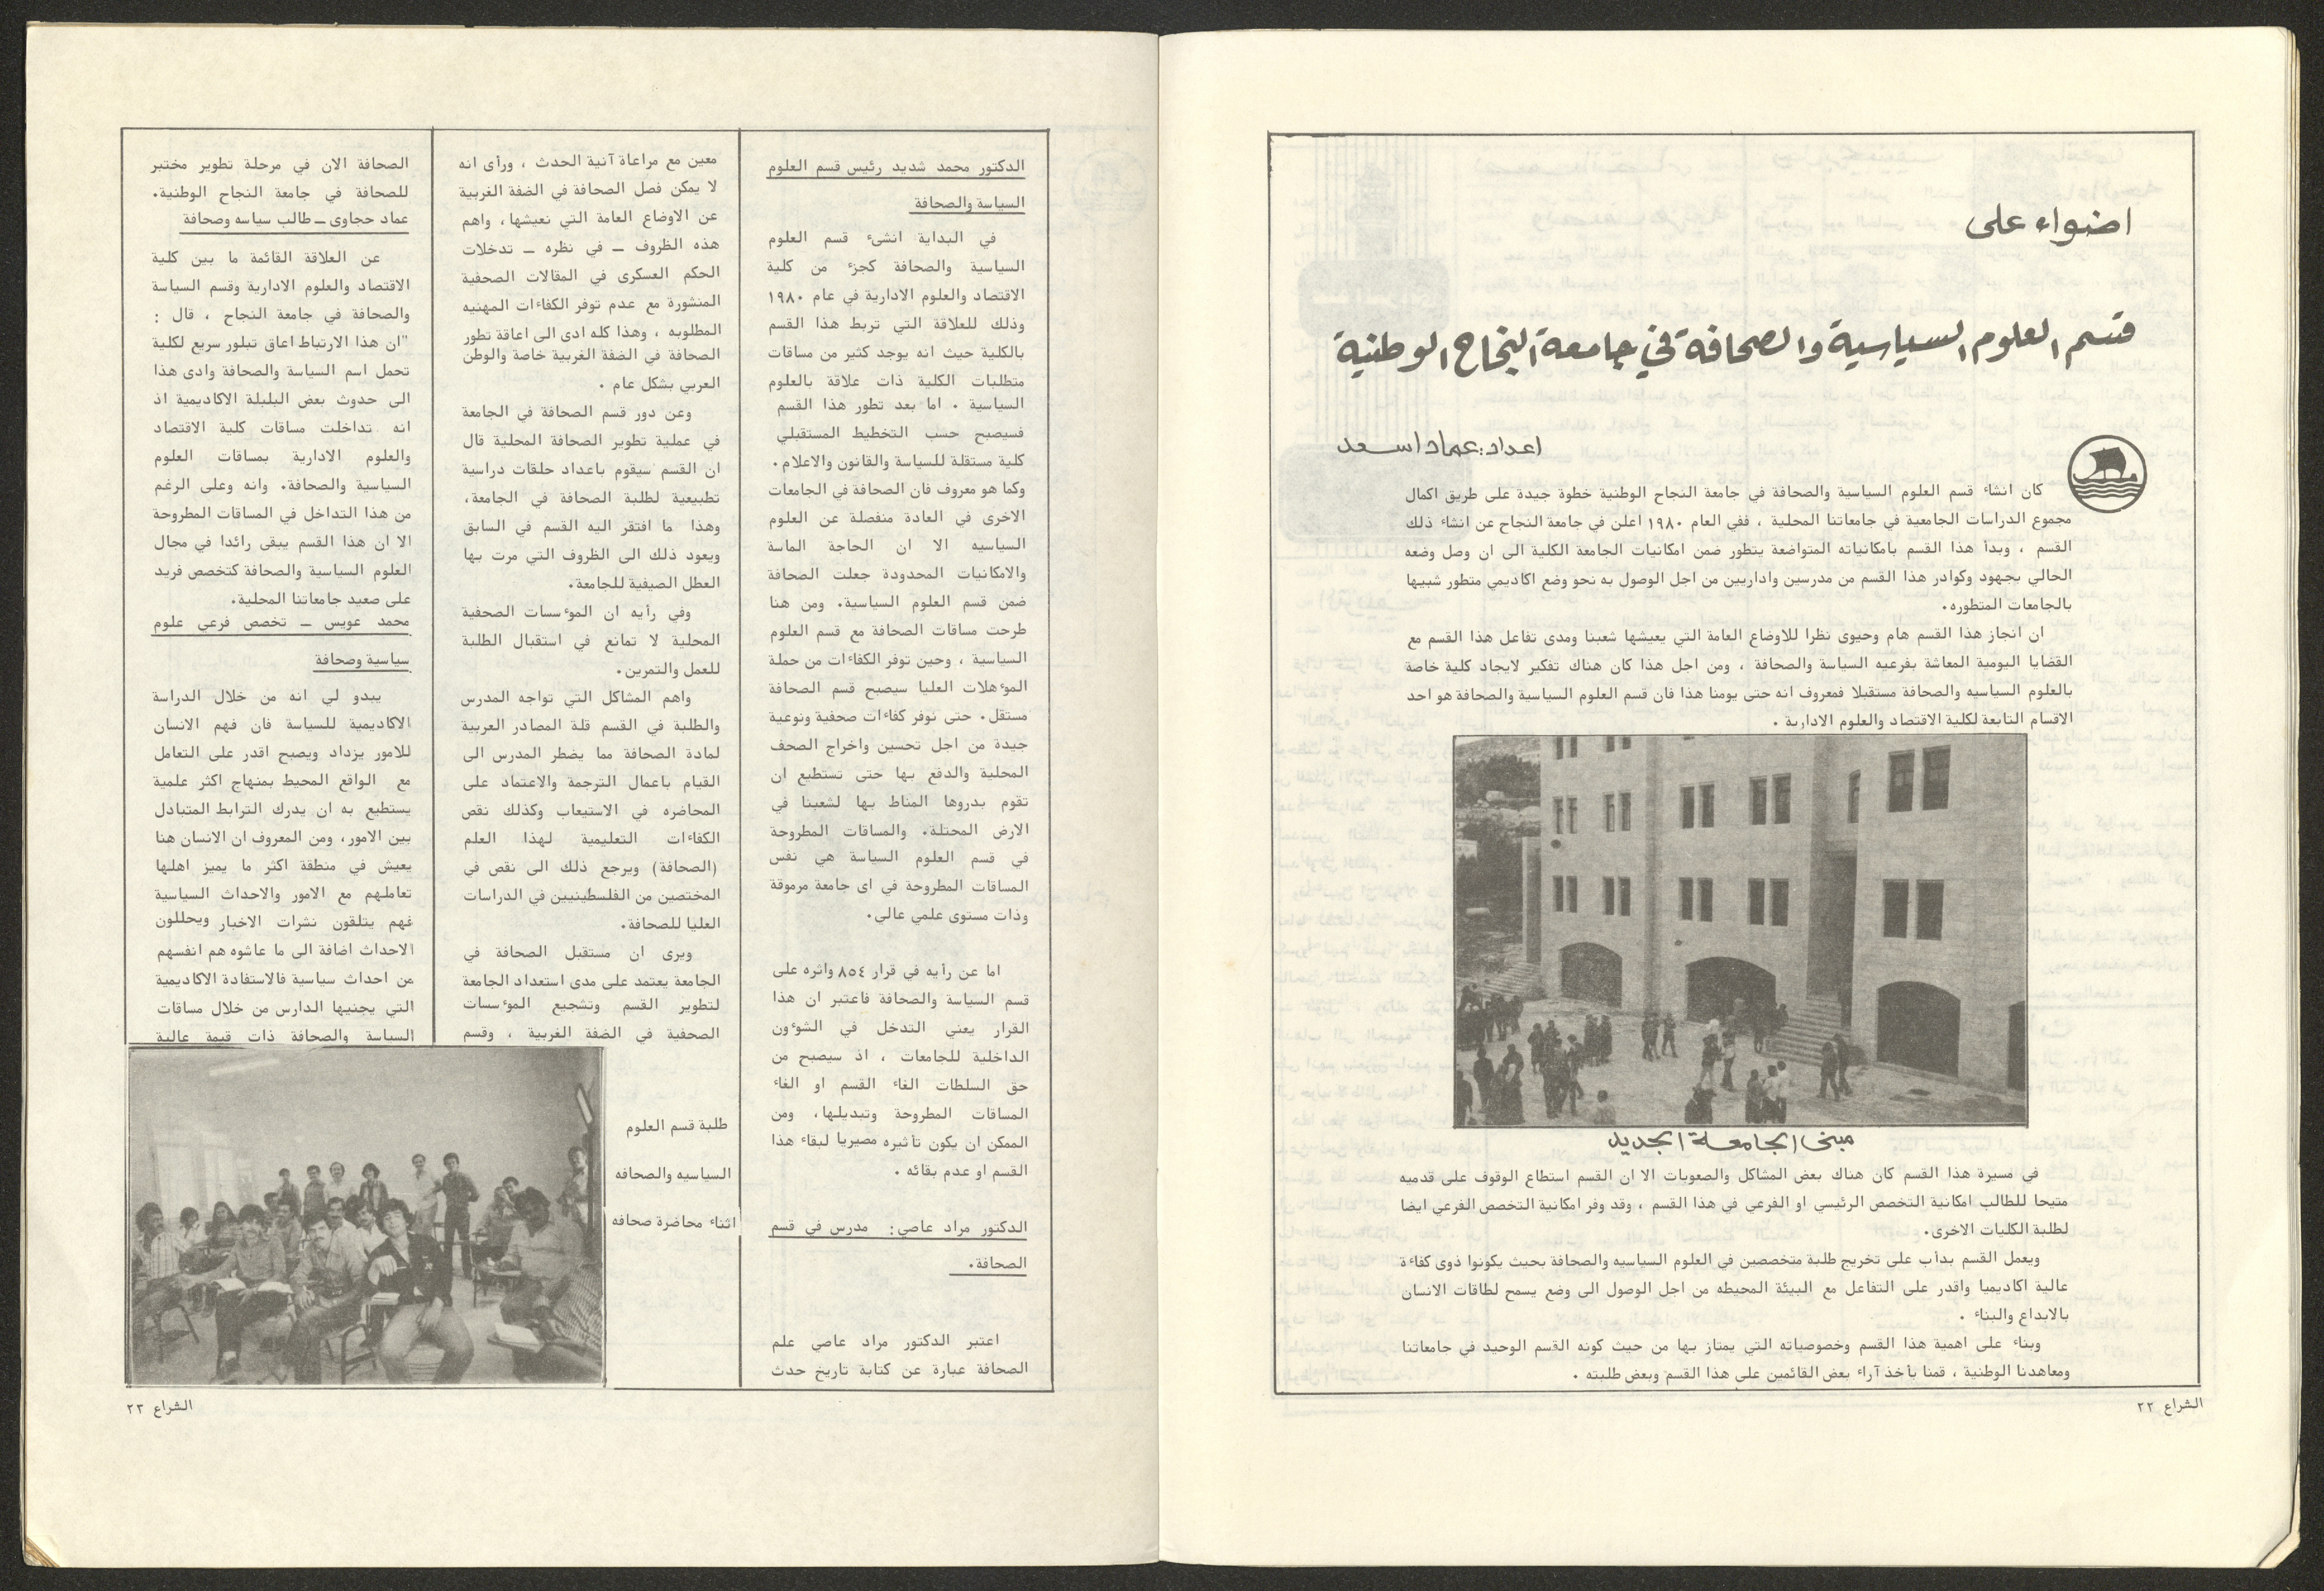 اضواء على
قسم العلوم السياسية والصحافة في جامعة النجاح الوطنية
اعداد: عماد اسعد
كان انشاء قسم العلوم السياسية والصحافة في جامعة النجاح الوطنية خطوة جيدة على طريق اكمال
مجموع الدراسات الجامعية في جامعاتنا المحلية ، ففي العام ١٩٨٠ اعلن في جامعة النجاح عن انشاء ذلك
القسم ، وبدأ هذا القسم بامكانياته المتواضعة يتطور ضمن امكانيات الجامعة الكلية الى ان وصل وضعه
الحالي بجهود وكوادر هذا القسم من مدرسين واداريين من اجل الوصول به نحو وضع اكاديمي متطور شبيها
بالجامعات المتطوره.
ان انجاز هذا القسم هام وحيوى نظرا للاوضاع العامة التي يعيشها شعبنا ومدى تفاعل هذا القسم مع
القضايا اليومية المعاشة بفرعيه السياسة والصحافة ، ومن اجل هذا كان هناك تفكير لايجاد كلية خاصة
بالعلوم السياسيه والصحافة مستقبلا فمعروف انه حتى يومنا هذا فان قسم العلوم السياسية والصحافة هو احد
الاقسام التابعة لكلية الاقتصاد والعلوم الادارية .
مبنى الجامعة الجديد
في مسيرة هذا القسم كان هناك بعض المشاكل والصعوبات الا ان القسم استطاع الوقوف على قدميه
متيحا للطالب امكانية التخصص الرئيسي او الفرعي في هذا القسم ، وقد وفر امكانية التخصص الفرعي ايضا
لطلبة الكليات الاخرى.
ويعمل القسم بدأب على تخريج طلبة متخصصين في العلوم السياسيه والصحافة بحيث يكونوا ذوى كفاءة
عالية اكاديميا واقدر على التفاعل مع البيئة المحيطه من اجل الوصول الى وضع يسمح لطاقات الانسان
بالابداع والبناء .
وبناء على اهمية هذا القسم وخصوصياته التي يمتاز بها من حيث كونه القسم الوحيد في جامعاتنا
ومعاهدنا الوطنية ، قمنا بأخذ آراء بعض القائمين على هذا القسم وبعض طلبته .
الشراع ٢٢
الدكتور محمد شديد رئيس قسم العلوم
السياسة والصحافة
في البداية انشىء قسم العلوم
السياسية والصحافة كجزء من كلية
الاقتصاد والعلوم الادارية في عام ١٩٨٠
وذلك للعلاقة التي تربط هذا القسم
بالكلية حيث انه يوجد كثير من مساقات
متطلبات الكلية ذات علاقة بالعلوم
السياسية . اما بعد تطور هذا القسم
فسيصبح حسب التخطيط المستقبلي
كلية مستقلة للسياسة والقانون والاعلام.
وكما هو معروف فان الصحافة في الجامعات
الاخرى في العادة منفصلة عن العلوم
السياسيه الا ان الحاجة الماسة
والامكانيات المحدودة جعلت الصحافة
ضمن قسم العلوم السياسية. ومن هنا
طرحت مساقات الصحافة مع قسم العلوم
السياسية ، وحين توفر الكفاءات من حملة
المؤهلات العليا سيصبح قسم الصحافة
مستقل. حتى نوفر كفاءات صحفية ونوعية
جيدة من اجل تحسين واخراج الصحف
المحلية والدفع بها حتى تستطيع ان
تقوم بدروها المناط بها لشعبنا في
الارض المحتلة. والمساقات المطروحة
في قسم العلوم السياسة هي نفس
المساقات المطروحة في اى جامعة مرموقة
وذات مستوى علمي عالي.
اما عن رأيه في قرار ٨٥٤ واثره على
قسم السياسة والصحافة فاعتبر ان هذا
القرار يعني التدخل في الشوءون
الداخلية للجامعات ، اذ سيصبح من
حق السلطات الغاء القسم او الغاء
المساقات المطروحة وتبديلها، ومن
الممكن ان يكون تأثيره مصيريا لبقاء هذا
القسم او عدم بقائه .
الدكتور مراد عاصي: مدرس في قسم
الصحافة.
اعتبر الدكتور مراد عاصي علم
الصحافة عبارة عن كتابة تاريخ حدث
معين مع مراعاة آنية الحدث ، ورأى انه
لا يمكن فصل الصحافة في الضفة الغربية
عن الاوضاع العامة التي نعيشها، واهم
هذه الظروف ــ في نظره ــ تدخلات
الحكم العسكرى في المقالات الصحفية
المنشورة مع عدم توفر الكفاءات المهنيه
المطلوبه ، وهذا كله ادى الى اعاقة تطور
الصحافة في الضفة الغربية خاصة والوطن
العربي بشكل عام .
وعن دور قسم الصحافة في الجامعة
في عملية تطوير الصحافة المحلية قال
ان القسم سيقوم باعداد حلقات دراسية
تطبيعية لطلبة الصحافة في الجامعة،
وهذا ما افتقر اليه القسم في السابق
ويعود ذلك الى الظروف التي مرت بها
العطل الصيفية للجامعة.
وفي رأيه ان الموءسسات الصحفية
المحلية لا تمانع في استقبال الطلبة
للعمل والتمرين.
واهم المشاكل التي تواجه المدرس
والطلبة في القسم قلة المصادر العربية
لمادة الصحافة مما يضطر المدرس الى
القيام باعمال الترجمة والاعتماد على
المحاضره في الاستيعاب وكذلك نقص
الكفاءات التعليمية لهذا العلم
(الصحافة) ويرجع ذلك الى نقص في
المختصين من الفلسطينيين في الدراسات
العليا للصحافة.
ويرى ان مستقبل الصحافة في
الجامعة يعتمد على مدى استعداد الجامعة
لتطوير القسم وتشجيع الموءسسات
الصحفية في الضفة الغربية ، وقسم
طلبة قسم العلوم
السياسيه والصحافه
اثناء محاضرة صحافه
الصحافة الان في مرحلة تطوير مختبر
للصحافة في جامعة النجاح الوطنية.
عماد حجاوى ــ طالب سياسه وصحافة
عن العلاقة القائمة ما بين كلية
الاقتصاد والعلوم الادارية وقسم السياسة
والصحافة في جامعة النجاح ، قال :
"ان هذا الارتباط اعاق تبلور سريع لكلية
تحمل اسم السياسة والصحافة وادى هذا
الى حدوث بعض البلبلة الاكاديمية اذ
انه تداخلت مساقات كلية الاقتصاد
والعلوم الادارية بمساقات العلوم
السياسية والصحافة. وانه وعلى الرغم
من هذا التداخل في المساقات المطروحة
الا ان هذا القسم يبقى رائدا في مجال
العلوم السياسية والصحافة كتخصص فريد
على صعيد جامعاتنا المحلية.
محمد عويس ــ تخصص فرعي علوم
سياسية وصحافة
يبدو لي انه من خلال الدراسة
الاكاديمية للسياسة فان فهم الانسان
للامور يزداد ويصبح اقدر على التعامل
مع الواقع المحيط بمنهاج اكثر علمية
يستطيع به ان يدرك الترابط المتبادل
بين الامور، ومن المعروف ان الانسان هنا
يعيش في منطقة اكثر ما يميز اهلها
تعاملهم مع الامور والاحداث السياسية
فهم يتلقون نشرات الاخبار ويحللون
الاحداث اضافة الى ما عاشوه هم انفسهم
من احداث سياسية فالاستفادة الاكاديمية
التي يجنيها الدارس من خلال مساقات
السياسة والصحافة ذات قيمة عالية
الشراع ٢٣